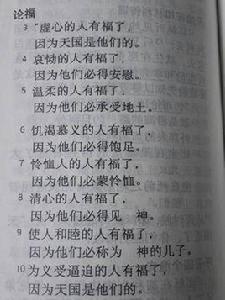 论福
3 “虚心的人有福了，
因为天国是他们的。
4 哀恸的人有福了，
因为他们必得安慰。
5 温柔的人有福了，
因为他们必承受地土。
6 饥渴慕义的人有福了，
因为他们必得饱足。
7 怜恤人的人有福了，
因为他们必蒙怜恤。
8 清心的人有福了，
因为他们必得见 神。
9 使人和睦的人有福了，
因为他们必称为 神的儿子。
10 为义受逼迫的人有福了，
因为天国是他们的。